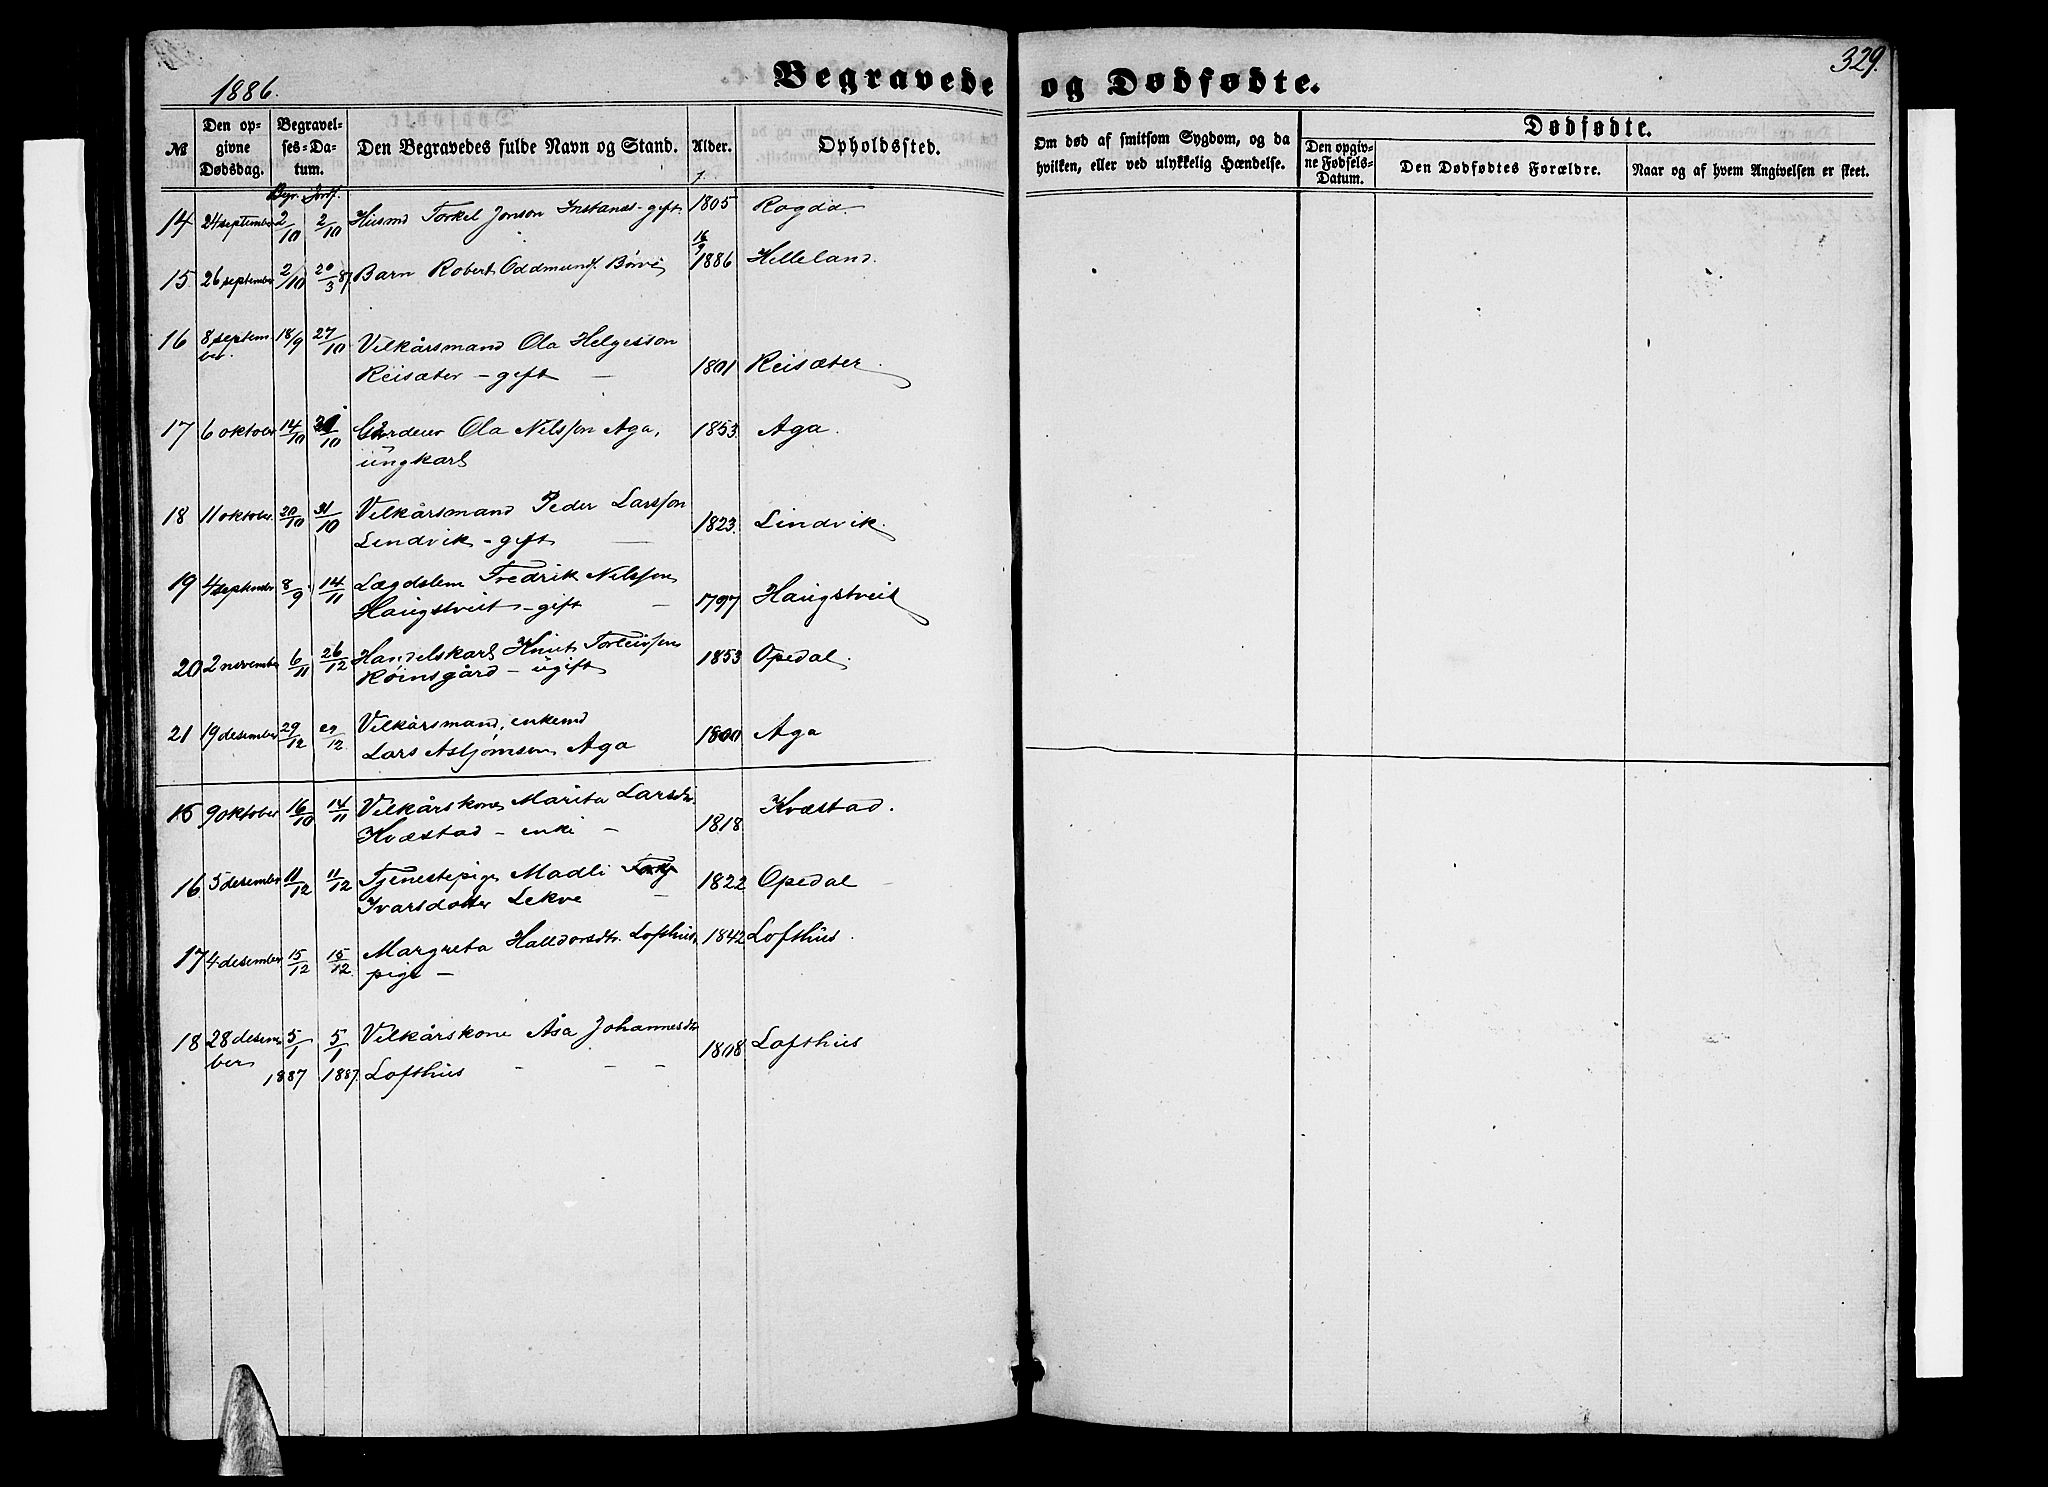 329.
1886.
Begravede og Dødfødte.
№
Den opgivne Dødsdag.
Begravelses-Datum.
Den Begravedes fulde Navn og Stand.
Alder.
Opholdssted.
Om død af smitsom Sygdom, og da hvilken, eller ved ulykkelig Hændelse.
Dødfødte.
Den opgivne Fødsels-Datum.
Den Dødfødtes Forældre.
Naar og af hvem Angivelsen er skeet.
Begr. Jordf. f.
14 24 september 2/10 2/10 Husmd Torkel Jonson Instanes - gift 1805 Rogda.
15 26 september 2/10 20/3 87. Barn Robert Oddmunds. Børve 16/9 1886 Helleland.
16 8 septem- 18/9 27/10 Vilkårsmand Ola Helgesson
ber. Reisæter - gift - 1801 Reisæter.
17 6 oktober 14/10 /10 Gardeier Ola Nelsson Aga, 1853. Aga.
ungkarl
18 11 oktober. 20/10 31/10 Vilkårsmand Peder Larsson
Lindvik - gift - 1823. Lindvik.
19 4 september 8/9 14/11 Lægdslem Fredrik Nelsson
Haugstveit - gift - 1797 Haugstveit
20 2 november 6/11 26/12 Handelskarl Knut Torleivson
Røinsgård - ugift 1853 Opedal.
21 19 desember 29/12 29/12. Vilkårsmand, enkemd
Lars Asbjørnson Aga 1800 Aga
15 9 oktober 16/10 14/11 Vilkårskone Marita Larsdtr.
Kvæstad - enke - 1818 Kvæstad.
16 5 desember 11/12 11/12 Tjenestepige Madli
Ivarsdotter Lekve - 1822 Opedal
17 4 desember 15/12 15/12. Margreta Halldorsdtr. Lofthus, 1842 Lofthus.
pige -
18 28 desem- 5/1 5/1 Vilkårskone Åsa Johannesdtr
ber 1887 1887. Lofthus - - - 1808 Lofthus